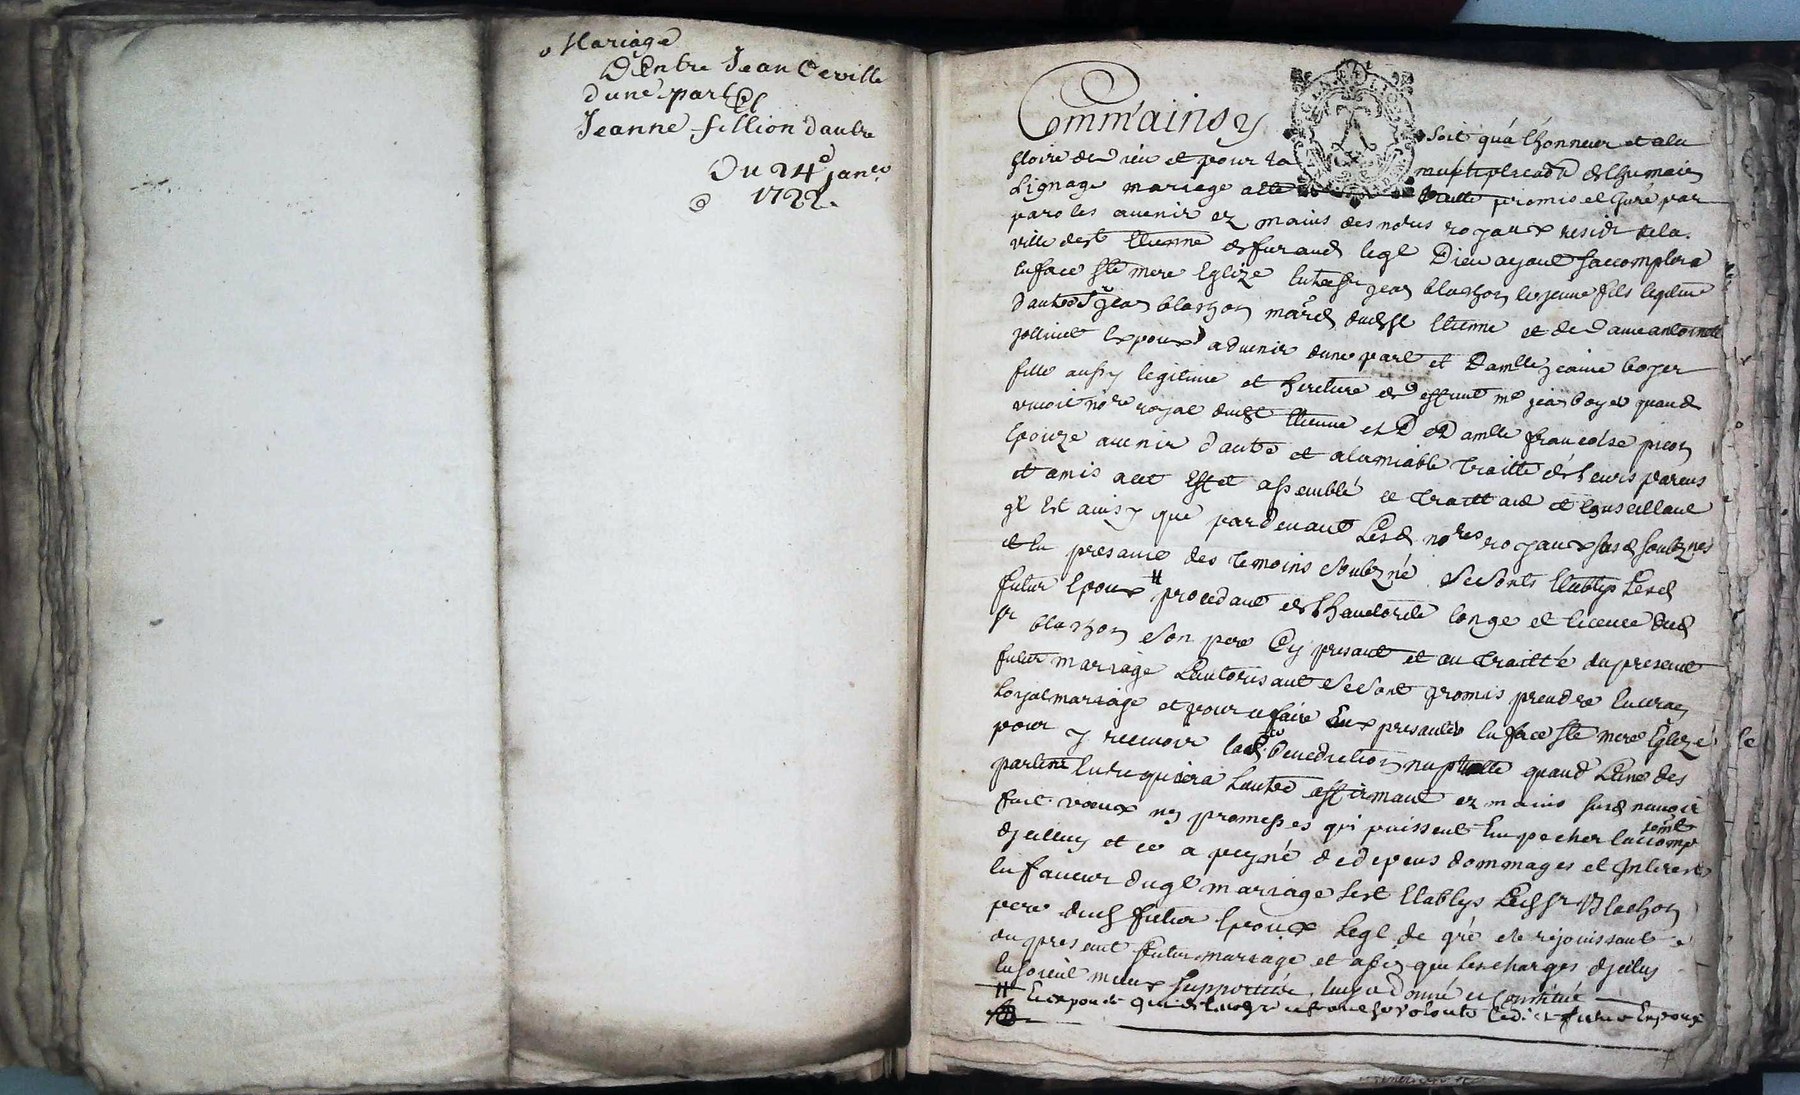 Mariage
D'Entre Jean Deville
dune part Et
Jeanne fillion dautre
Du 24e janer
1722.
Comm'ainsy soit qu'a l'honneur et a la
Gloire de Dieu et pour la multiplicaon de lhumain
Lignage mariage aste traitté promis et juré par
paroles avenir ez mains des nores royaux residt dela
ville de st Etienne de furand leql Dieu aydant saccomplira
En face ste mere Eglize Entre sr jean blachon le jeune fils legitime
dautre sr jean blachon mard dud st Etienne et de Dame antoinette
jollivet Epoux advenir dune part et Damlle jeanne boyer
fille aussy legitime et heritiere de deffunt me jean boyer quand
vivoit nore royal dud st Etienne et D Damlle francoise picon
Epouze avenir dautre et alamiable traitté de leurs parens
et amis a cet Effet assemblé ce traittant et Conseillant
ql Est ainsy que pardevant Lesd nores royaux susd soubznés
et En presance des temoins soubzné se sonts Etablys Lesd
futur Epoux procedant de l'hautorité Conge et licence dud
sr blachon son pere Cy presant et au traitté du present
futur mariage L'autorisant se sont promis prendre En vray
Loyal mariage et pour ce faire Eux presanter En face ste mere Eglize
pour y recevoir la de benediction nuptialle quand L'une des
parties En requierra L'autre affirmant ez mains susd navoir
fait vœux ny promesses qui puissent Empecher laccomp
semt
dycelluy et ce a peyne de depens dommages et Interest
En faveur duql mariage sest Etablys Led sr Blachon
pere dud futur Epoux Leql de gré se rejouissant
du present futur mariage et afin que Les charges dycelus
En soient mieux supportées, luy a donné et Constitué